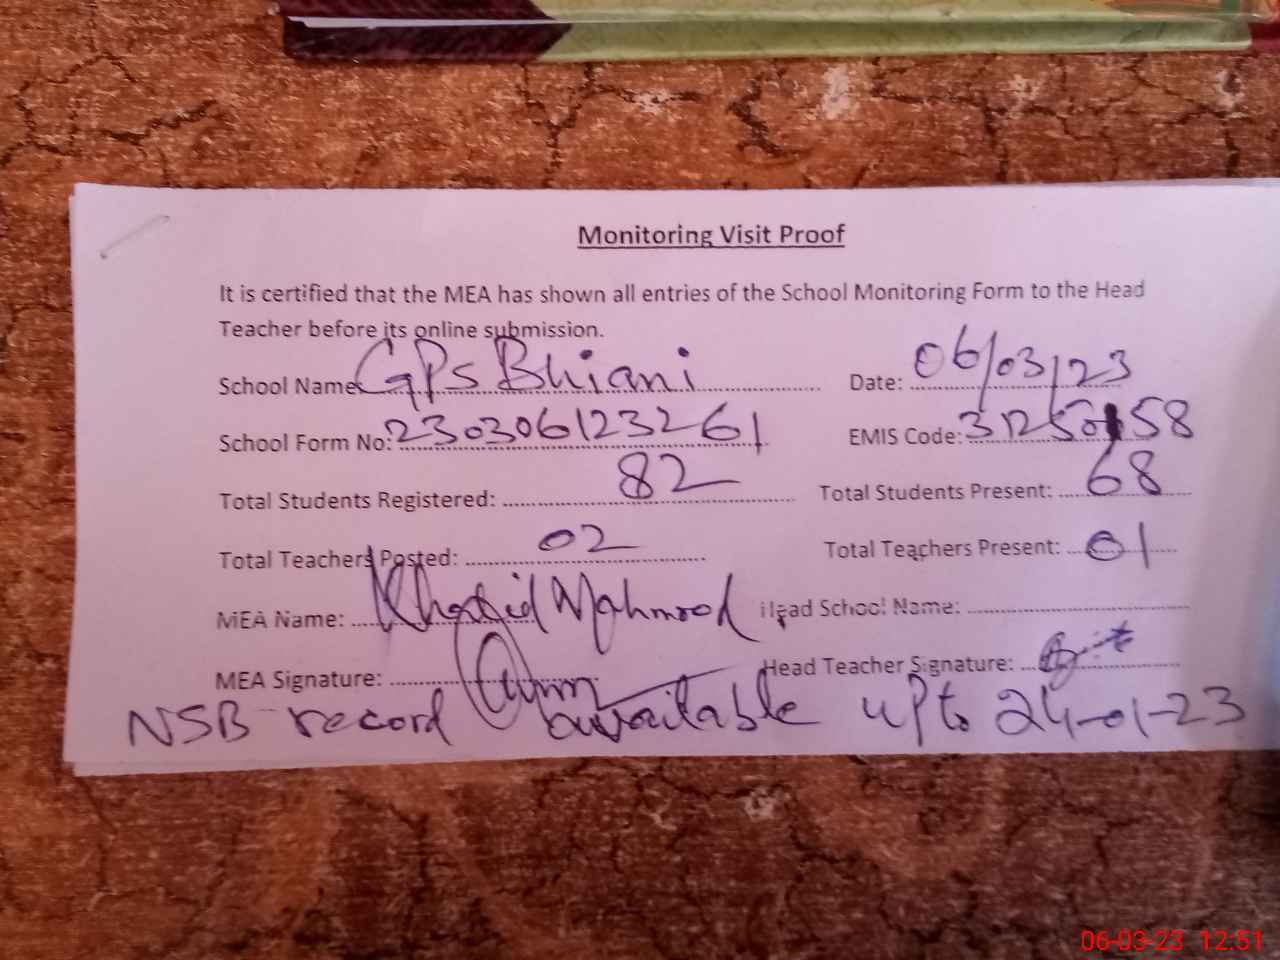 Monitoring Visit Proof
It is certified that the MEA has shown all entries of the School Monitoring Form to the Head
Teacher before its online submission.
School Name: GPS Bhiani Date: 06/03/23
School Form No: 230306123261 EMIS Code: 31250158
Total Students Registered: 82 Total Students Present: 68
Total Teachers Posted: 02 Total Teachers Present: 01
MEA Name: Khalid Mahmood Head School Name:
MEA Signature: Head Teacher Signature:
NSB record available upto 24-01-23
06-03-23 12:51